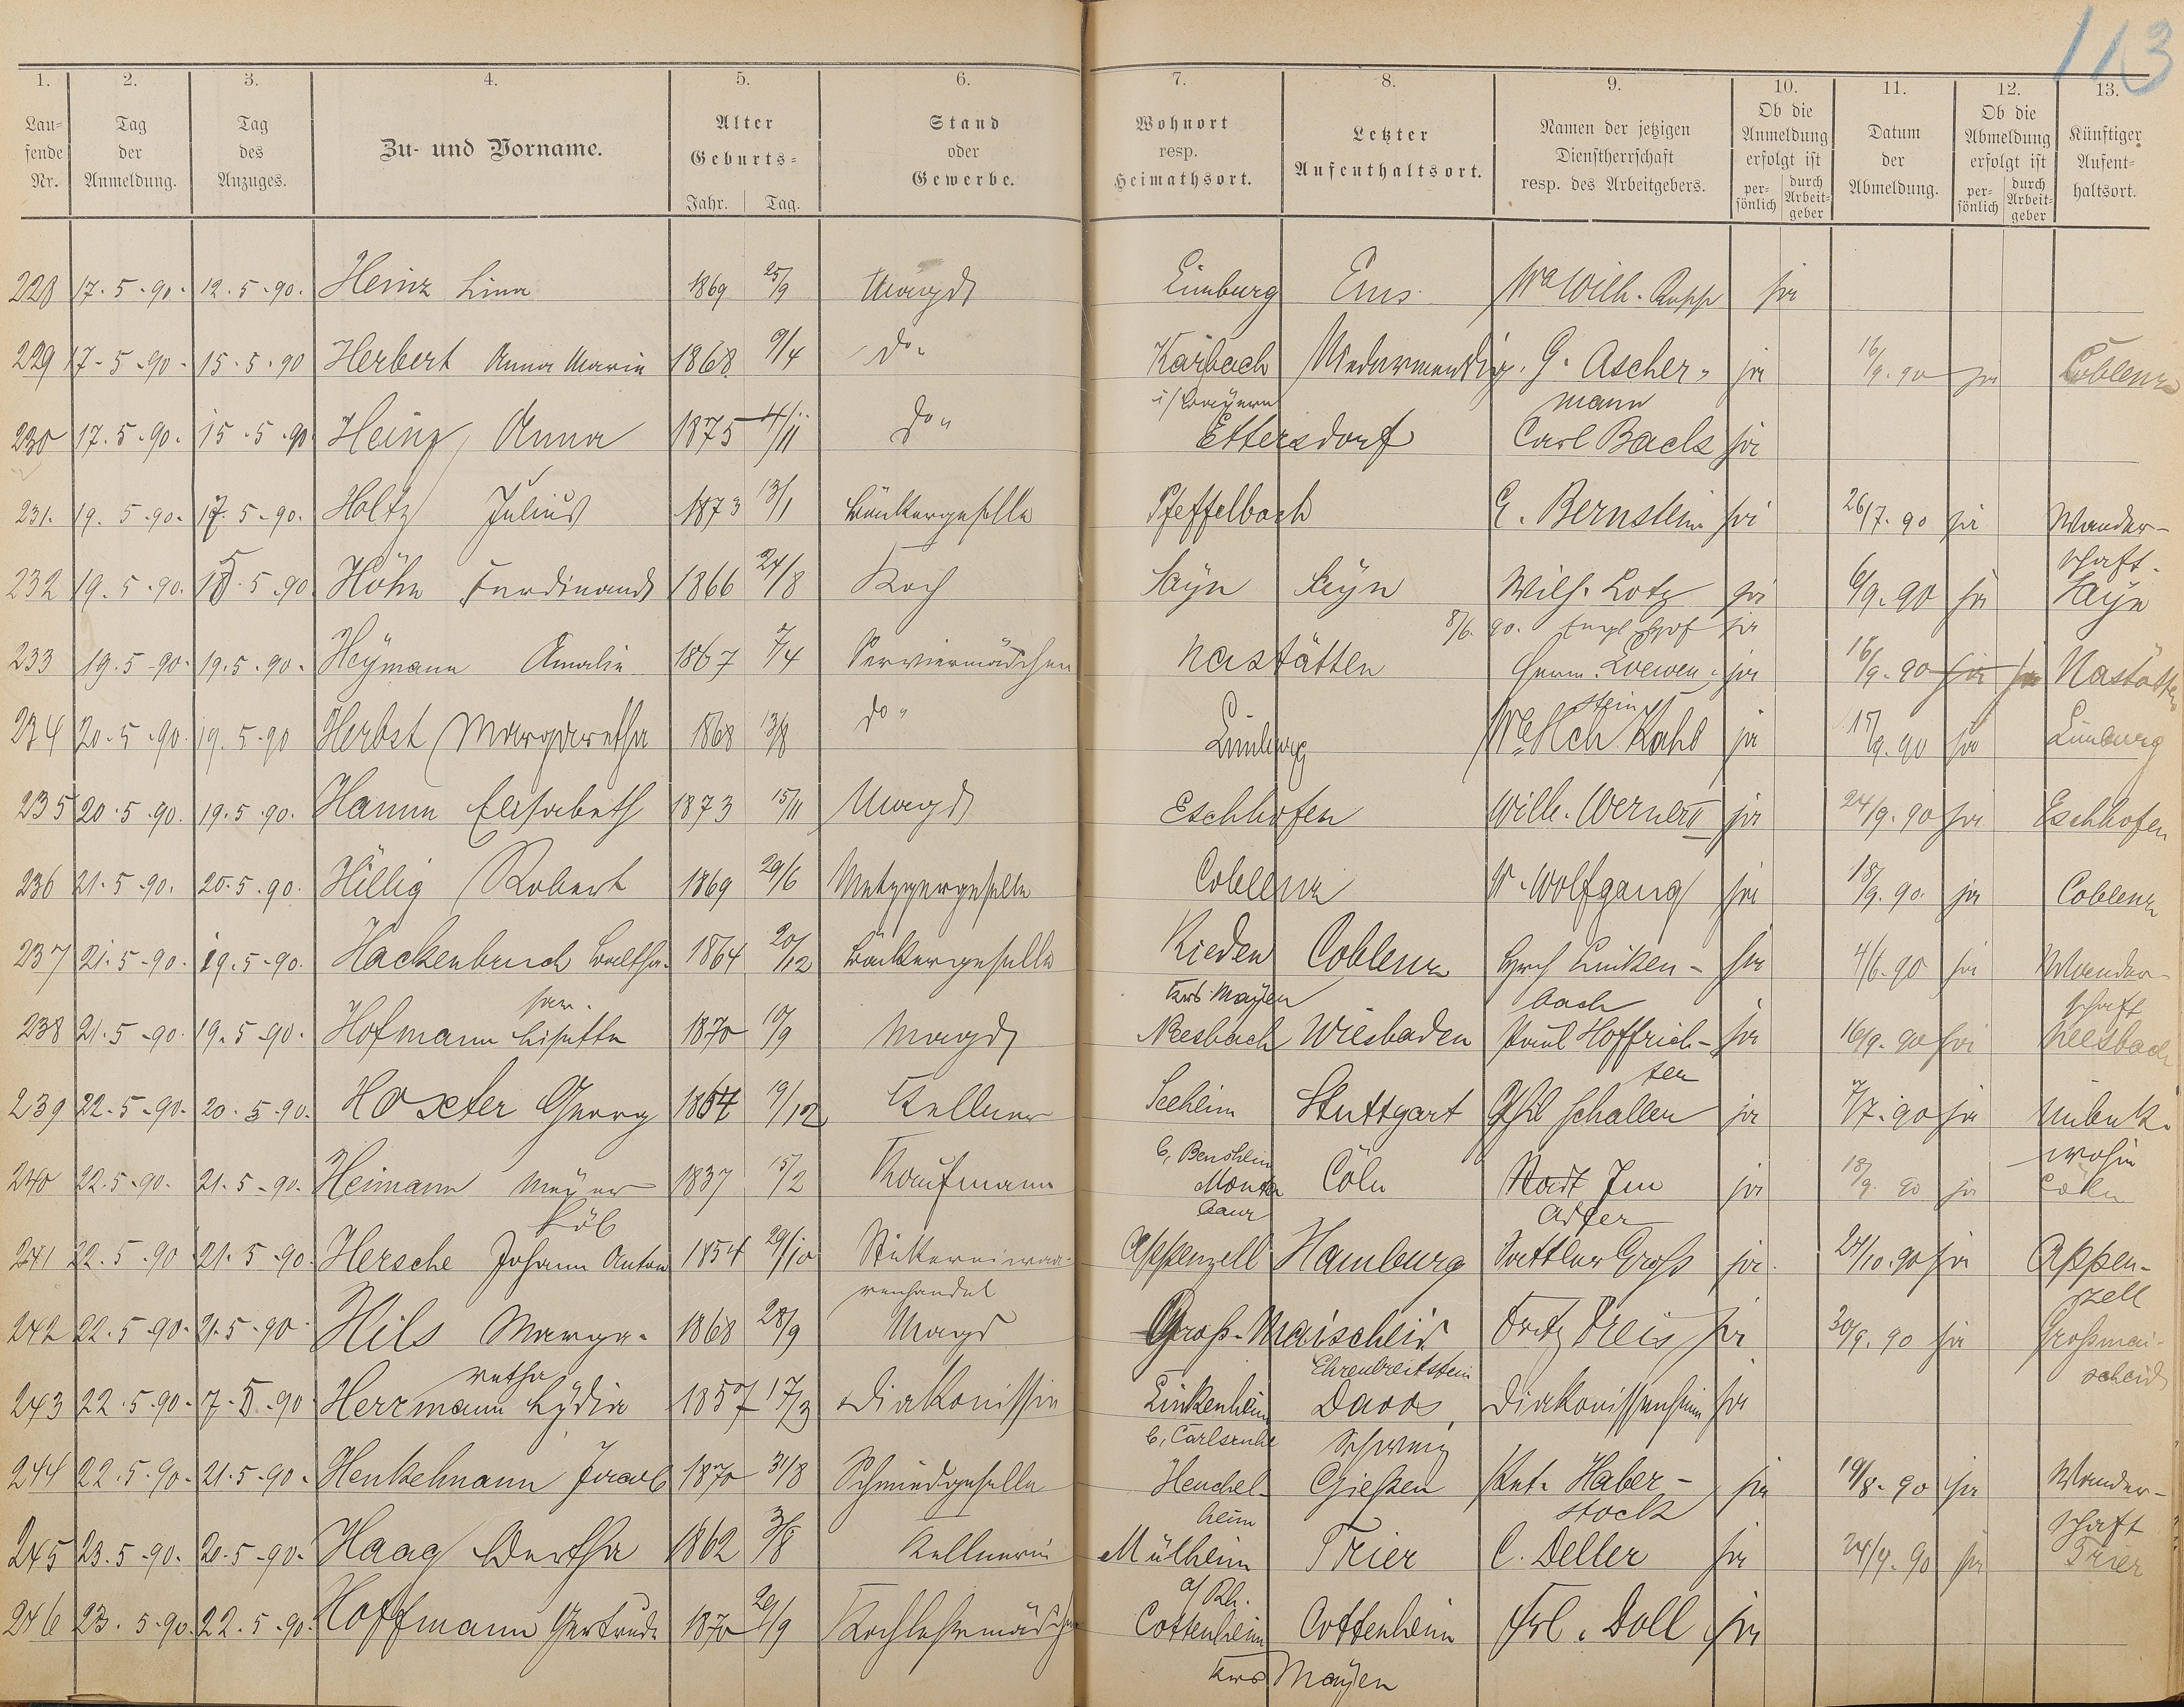 113
1. 2. 3. 4. 5. 6. 7. 8. 9. 10. 11. 12. 13.
Lau=
fende
Nr.
Tag
der
Anmeldung.
Tag
des
Anzuges.
Zu- und Vorname.
Alter
Geburts=
Jahr. Tag.
Stand
oder
Gewerbe.
Wohnort
resp.
Heimathsort.
Letzter
Aufenthaltsort.
Namen der jetzigen
Dienstherrschaft
resp. des Arbeitgebers.
Ob die
Anmeldung
erfolgt ist
per=
sönlich
durch
Arbeit=
geber
Datum
der
Abmeldung.
Ob die
Abmeldung
erfolgt ist
per=
sönlich
durch
Arbeit=
geber
Künftiger
Aufent=
haltsort.
228 17.5.90. 12.5.90. Heinz Lina 1869 25/9 Magd Limburg Ems Wa Wilh. Rupp ja
229 17-5-90- 15.5.90 Herbert Anna Maria 1868 9/4 do" Karbach Niedermendig. G. Ascher- ja 16/9.90 ja Coblenz
i/Bayern mann
230 17.5.90. 15.5.90 Heinz Anna 1875 4/11 do" Ettersdorf Carl Bach ja
231. 19.5.90. 17.5.90. Holtz Julius 1873 13/1 Bäckergeselle Pfeffelbach E. Bernstein ja 26/7.90 ja Wander-
schaft.
232 19.5.90. 18.5.90 Höhn Ferdinand 1866 24/8 Koch Sayn Sayn Wilh. Lotz ja 6/9.90 ja Sayn
8/6.90. Engl. Hof ja
233 19.5.90. 19.5.90. Heymann Amalie 1867 7/4 Serviermädchen Nastätten Herm. Loewen- ja 16/9.90 ja ja Nastätten
stein
234 20.5.90. 19.5.90 Herbst Margaretha 1868 13/8 do" Limburg Wa Hch Kahl ja 15/9.90 ja Limburg
235 20.5.90. 19.5.90. Hamm Elisabeth 1873 15/11 Magd Eschhofen Wilh. Werner II ja 24/9.90 ja Eschhofen
236 21.5.90. 20.5.90. Hillig Robert 1869 29/6 Metzgergeselle Coblenz W. Wolfgang ja 18/9.90. ja Coblenz
237 21.5.90. 19.5.90. Hackenbruch Baltha- 1864 20/12 Bäckergeselle Kieden Coblenz Hrch Linken- ja 4/6.90 ja Wander-
sar. Krs. Mayen bach schaft
238 21.5.90. 19.5.90. Hofmann Lisette 1870 10/9 Magd Neesbach Wiesbaden Paul Hoffrich- ja 16/9.90 ja Neesbach
ter
239 22.5.90. 20.5.90. Hoxter Georg 1864 19/12 Kellner Seeheim Stuttgart Schaller ja 7/7.90 ja Unbek.
b, Bensheim wohin
240 22.5.90. 21.5.90. Heimann Meyer 1837 15/2 Kaufmann Monta Cöln Stadt Jm ja 18/9.90 ja Cöln
Köb baur
241 22.5.90 21.5.90. Hersche Johann Anton 1854 29/10 Stickereiwaa- Appenzell Hamburg Sattler Groß ja 24/10.90 ja Appen-
renhandel zell
242 22.5.90. 21.5.90. Hils Marga- 1868 28/9 Magd Groß-Maischeid Fritz Preis ja 30/9.90 ja Großmai-
retha Ehrenbreitstein scheid
243 22.5.90. 7.5.90 Herrmann Lydia 1857 17/3 Diakonissin Linkenheim Davos, Diakonissenheim ja
b, Carlsruhe Schweiz
244 22.5.90. 21.5.90. Henkelmann Jacob 1870 31/8 Schmiedgeselle Heuchel- Gießen Ant. Haber- ja 19/8.90 ja Wander-
heim stock schaft
245 23.5.90. 20.5.90. Haag Bertha 1862 3/8 Kellnerin Mülheim Trier C. Deller ja 24/9.90 ja Trier
a/Rh.
246 23.5.90. 22.5.90. Hoffmann Gertrude 1870 20/9 Kochlehrmädchen Cottenheim Cottenheim Frl. Doll ja
Krs Mayen